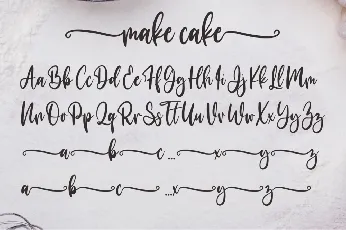 make cake
Aa Bb Cc Dd Ee Ff Gg Hh Ii Jj Kk Ll Mm
Nn Oo Pp Qq Rr Ss Tt Uu Vv Ww Xx Yy Zz
a b c ... x y z
a b c ... x y z